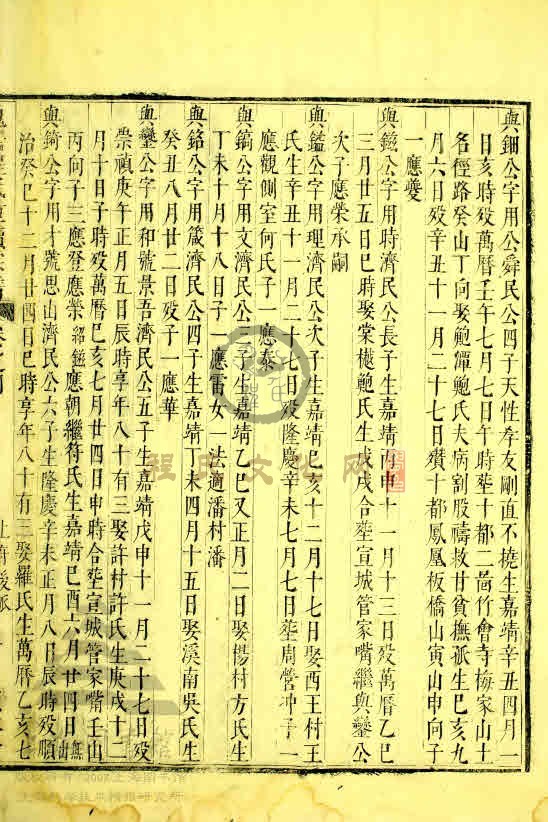 輿鈿公字用公舜民公四子天性孝友剛直不撓生嘉靖辛丑四月二
日亥時歿萬曆壬午七月七日午時塟十都二啚竹會寺梅家山土
名徑路癸山丁向娶鮑潭鮑氏夫病割股禱救甘貧撫孤生己亥九
月六日歿辛丑十一月二十七日殯十都鳳凰板橋山寅山申向子
一應夔
輿鎡公字用時濟民公長子生嘉靖丙申十一月十三日歿萬曆乙巳
三月廿五日巳時娶棠樾鮑氏生戊戌合塟宣城管家嘴繼輿鑾公
次子應榮承嗣
輿鎰公字用理濟民公次子生嘉靖己亥十二月十七日娶西王村王
氏生辛丑十一月二十七日歿隆慶辛未七月七日塟周營冲子一
應觀側室何氏子一應泰
輿鎬公字用文濟民公三子生嘉靖乙巳又正月二日娶楊村方氏生
丁未十月十八日子一應雷女一法適潘村潘
輿鉻公字用箴濟民公四子生嘉靖丁未四月十五日娶溪南吳氏生
癸丑八月廿二日歿子一應華
輿鑾公字用和號景吾濟民公五子生嘉靖戊申十一月二十七日歿
崇禎庚午正月五日辰時享年八十有三娶許村許氏生庚戌十二
月十日子時歿萬曆己亥七月廿四日申時合塟宣城管家嘴壬山
丙向子三應登應榮紹鎡應朝繼符氏生嘉靖己酉六月廿四日無出
輿錡公字用才號思山濟民公六子生隆慶辛未正月八日辰時歿順
治癸巳十二月廿四日巳時享年八十有三娶羅氏生萬曆乙亥七
程氏文化网